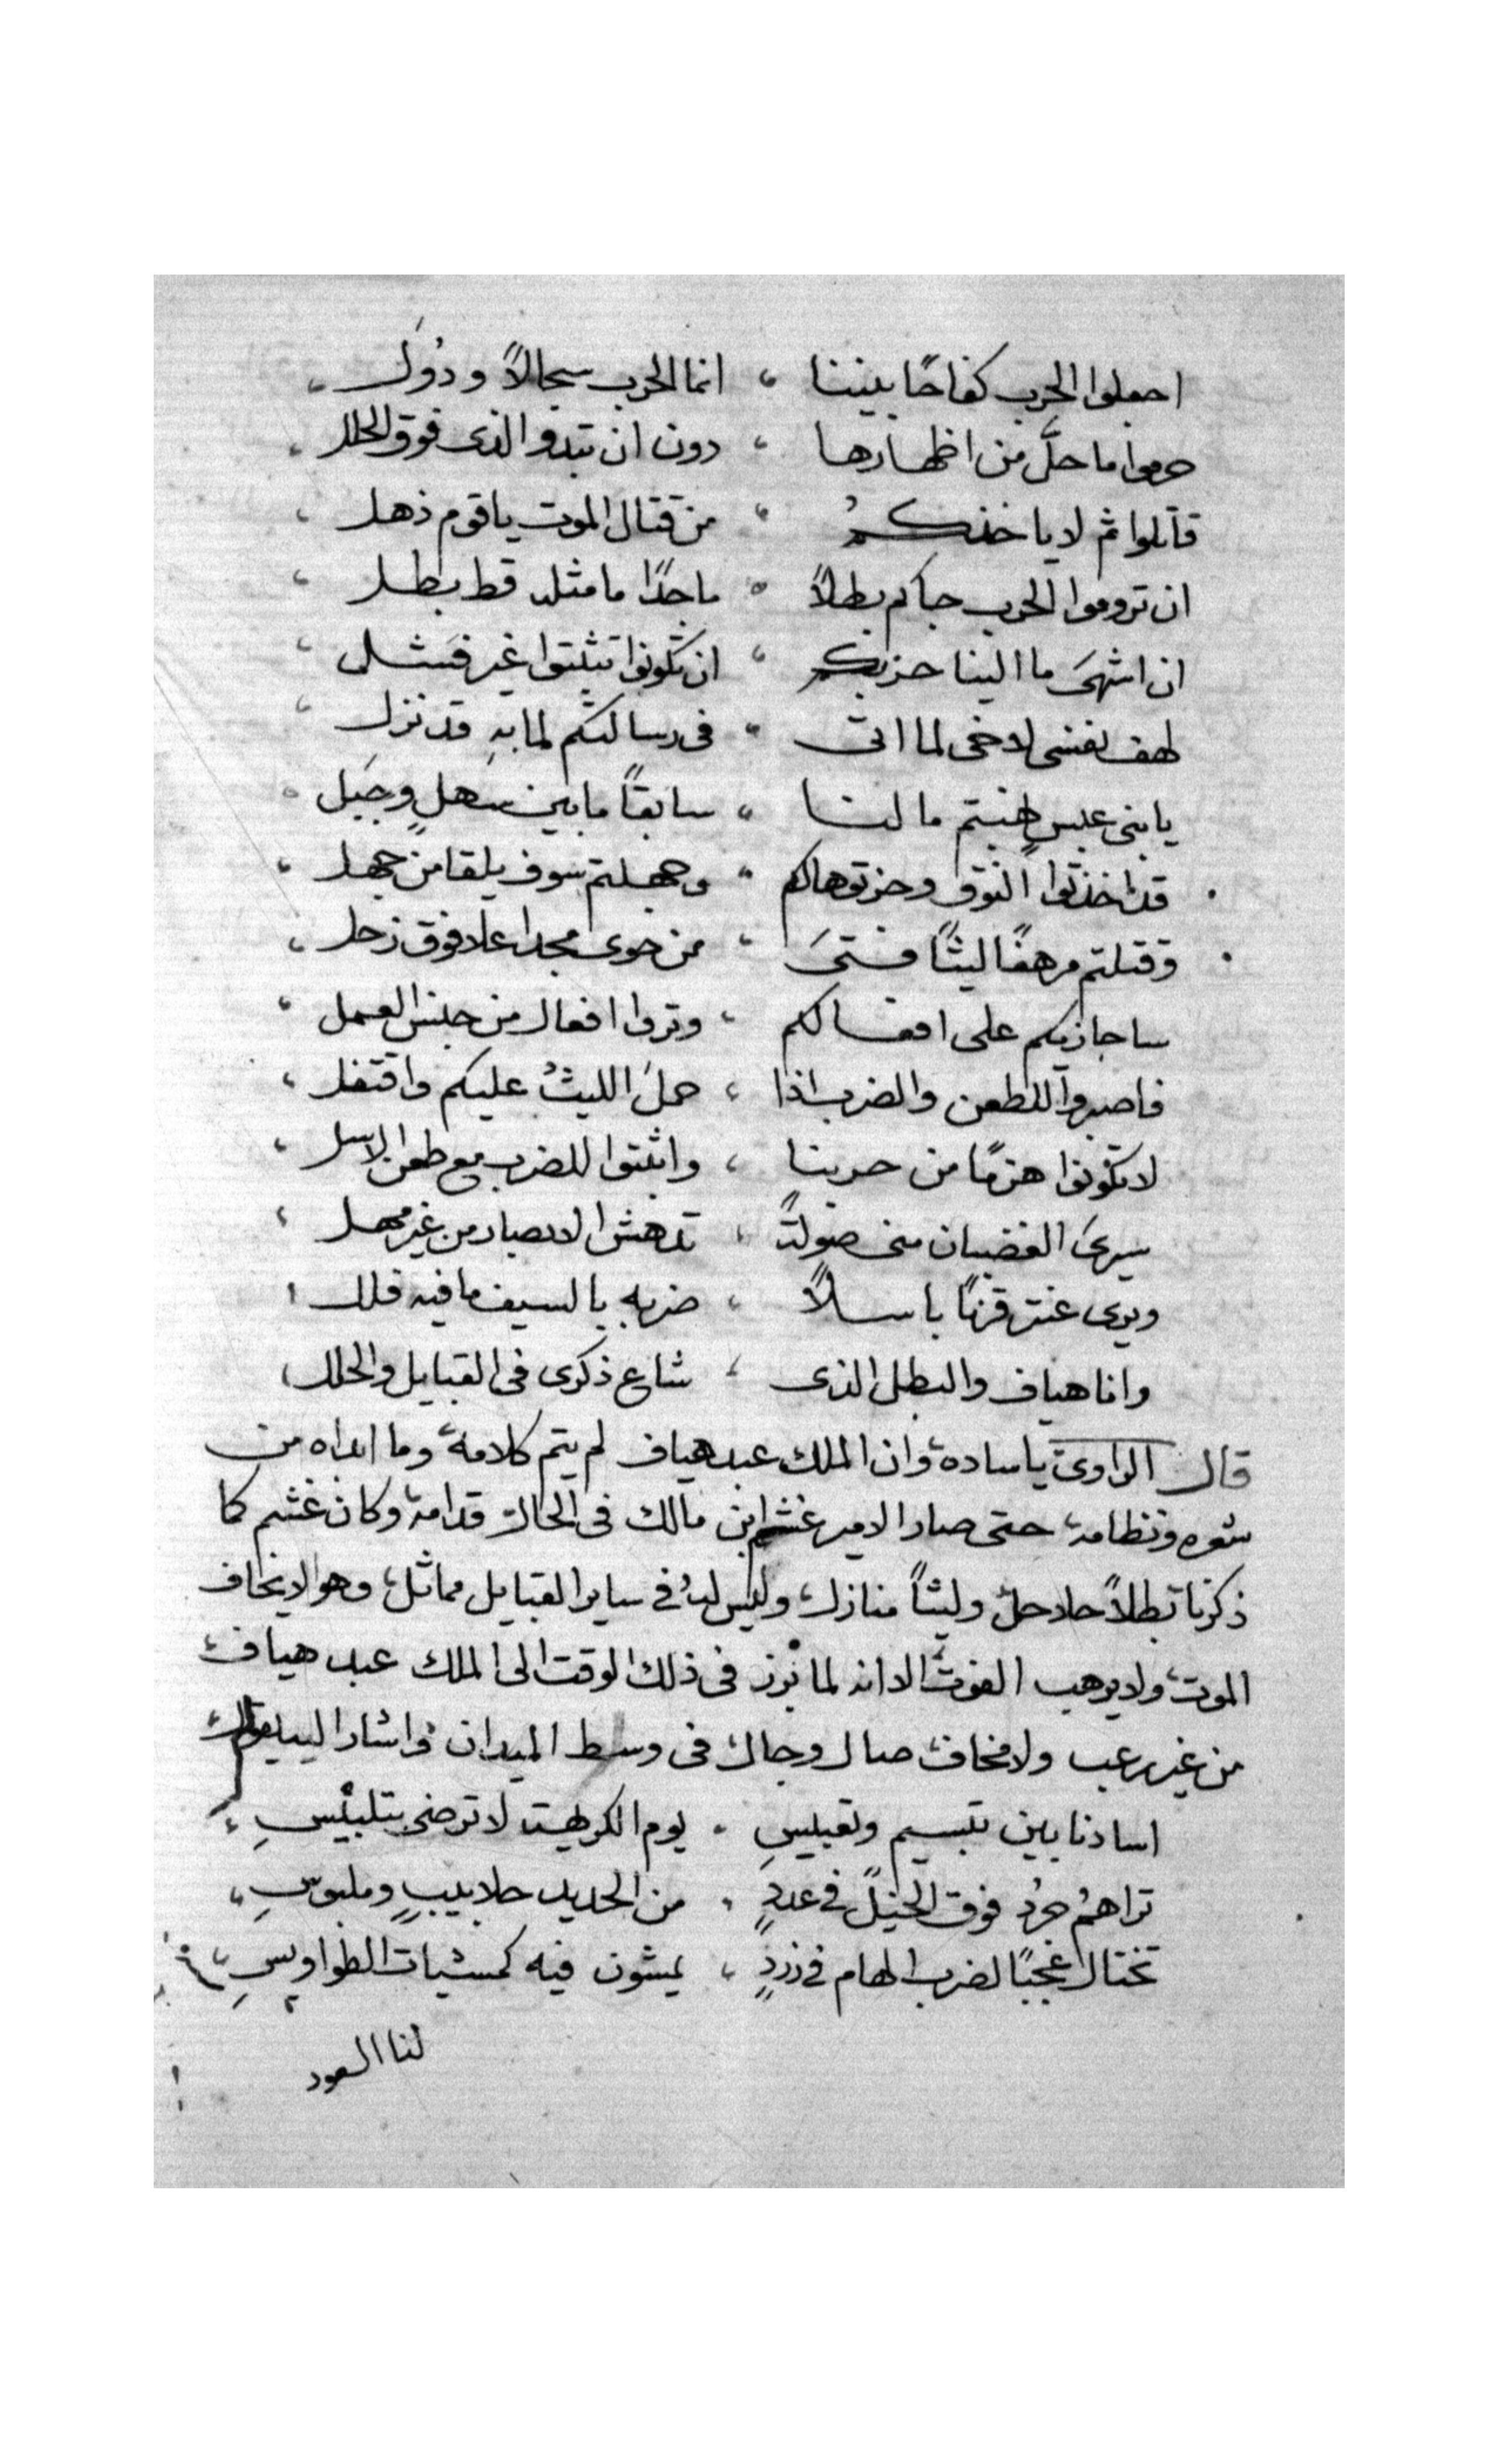 اجعلوا الحرب كفاحًا بيننا ، انما الحرب سجالاً ودُوَل
حرموا ما حلَّ من اظهارها ، دون ان تبدو الذى فوق الحلل
قاتلوا ثم لا ياخذكمُ ، من قتال الموت يا قوم ذهل
ان تروموا الحرب جاكم بطلاً ، ماجدًا ما مثله قط بطل
ان اشهىَ ما الينا حزبكم ، ان تكونوا تثبتوا غير فشل
لهف نفسى لاخى لما اتى ، فى رسالتكم لما به قد نزل
يا بنى عبسٍ هنبتم مالنا ، سابقاً ما بين سهلٍ وجبل
قد اخذتوا النوق وحزتوها لكم ، وجهلتم سوف يلقا من جهل
وقتلتم مرهفًا ليثًا فتىَ ، من حوى مجدا علا فوق زحل
ساجازيكم على افعالكم ، وتروا افعال من جنس العمل
فاصبروا للطعن والضرب اذا ، حملَ الليثُ عليكم واقتفل
لا تكونوا هزمًا من حربنا ، واثبتوا للضرب مع طعن الاسل
سيرىَ الغضبان منى صولةً ، تدهش الابصار من غير مهل
ويرى عنتر قرنًا باسلاً ، ضربه بالسيف ما فيه فلل
وانا هياف والبطل الذى ، شاع ذكرى فى القبايل والحلل
قال الراوى يا ساده، وان الملك عبد هياف لم يتم كلامه، وما ابداه من
شعره ونظامه، حتى صار الامير غشم ابن مالك فى الحال قدامه، وكان غشم كما
ذكرنا بطلاً حلاحل، وليثاً منازل، وليس لهُ فى ساير القبايل مماثل، وهو لا يخاف
الموت، ولا يرهب الفوت، الا انه لما برز فى ذلك الوقت الى الملك عبد هياف،
من غير رعب ولا مخاف، صال وجال فى وسط الميدان واشار اليه يقول،
اسادنا بين تبسيم وتعبيسِ ، يوم الكريهة لا ترضى بتلبيسِ ،
تراهمُ جردُ فوق الخيل فى عددٍ ، من الحديد جلابيبٍ وملبوسِ ،
تختال عجبًا لضرب الهام فى زردٍ ، يمشون فيه كمشيات الطواويسِ
لنا السعود